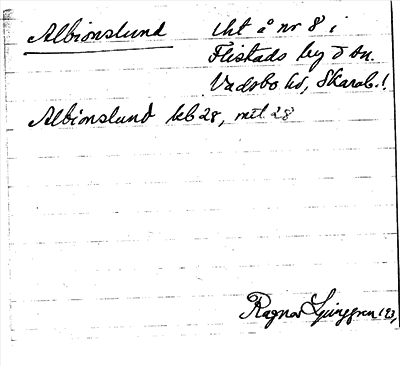 Albionslund lht å nr 8 i
Flistads by o sn.
Vadsbo hd, Skarab. l.
Albionslund kb 28, mtl 28
Ragnar Ljunggren